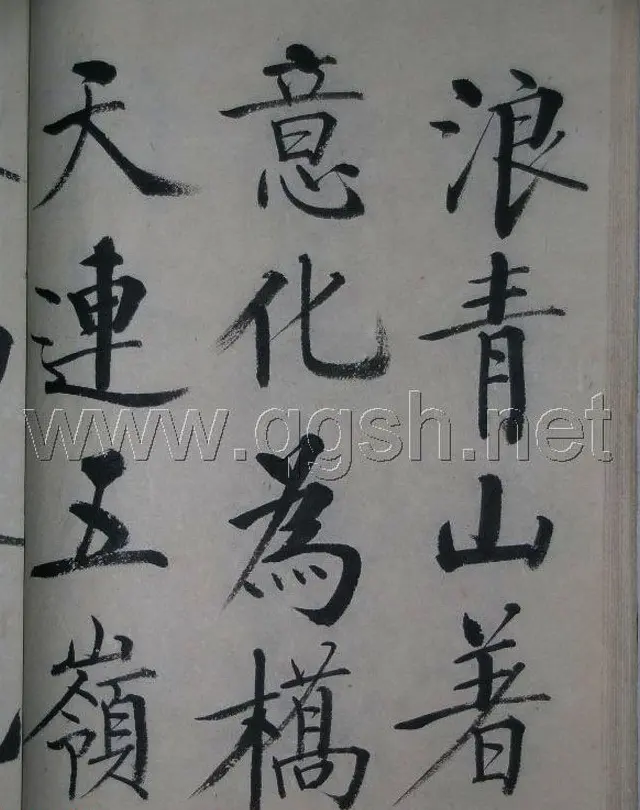 浪青山著
意化為橋
天連五嶺
www.qgsh.net